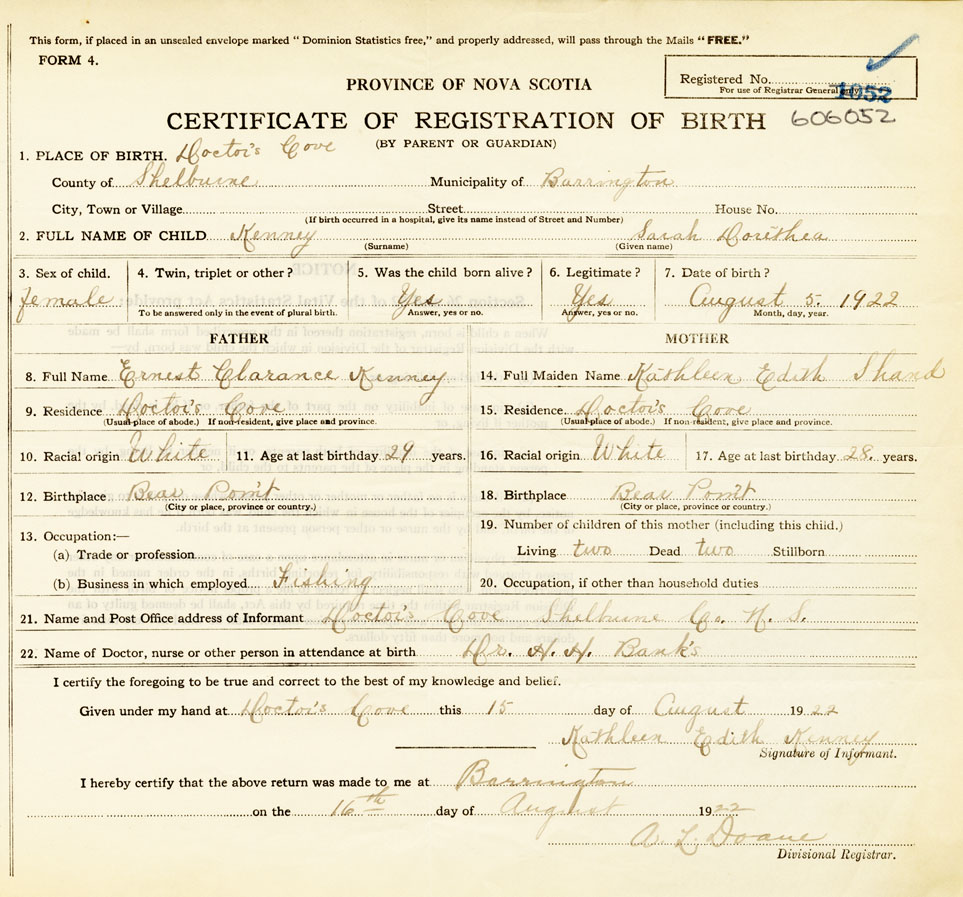 This form, if placed in an unsealed envelope marked "Dominion Statistics free," and properly addressed, will pass through the Mails "FREE."
FORM 4.
PROVINCE OF NOVA SCOTIA
Registered No.
For use of Registrar General only.
1052
CERTIFICATE OF REGISTRATION OF BIRTH 606052
(BY PARENT OR GUARDIAN)
1. PLACE OF BIRTH. Doctor's Cove
County of Shelburne Municipality of Barrington
City, Town or Village Street House No.
(If birth occurred in a hospital, give its name instead of Street and Number)
2. FULL NAME OF CHILD Kenney Sarah Dorithea
(Surname) (Given name)
3. Sex of child. 4. Twin, triplet or other? 5. Was the child born alive? 6. Legitimate? 7. Date of birth?
female Yes Yes August 5. 1922
To be answered only in the event of plural birth. Answer, yes or no. Answer, yes or no. Month, day, year.
FATHER MOTHER
8. Full Name Ernest Clarance Kenney 14. Full Maiden Name Kathleen Edith Shand
9. Residence Doctor's Cove 15. Residence Doctor's Cove
(Usual place of abode.) If non-resident, give place and province. (Usual place of abode.) If non-resident, give place and province.
10. Racial origin White 11. Age at last birthday 29 years. 16. Racial origin White 17. Age at last birthday 28. years.
12. Birthplace Bear Point 18. Birthplace Bear Point
(City or place, province or country.) (City or place, province or country.)
13. Occupation:— 19. Number of children of this mother (including this child.)
(a) Trade or profession Living two Dead two Stillborn
(b) Business in which employed Fishing 20. Occupation, if other than household duties
21. Name and Post Office address of Informant Doctor's Cove Shelburne Co. N. S.
22. Name of Doctor, nurse or other person in attendance at birth Dr. H. H. Bank's
I certify the foregoing to be true and correct to the best of my knowledge and belief.
Given under my hand at Doctor's Cove this 15 day of August 1922
Kathleen Edith Kenney
Signature of Informant.
I hereby certify that the above return was made to me at Barrington
on the 16th day of August 1922
A L Doane
Divisional Registrar.